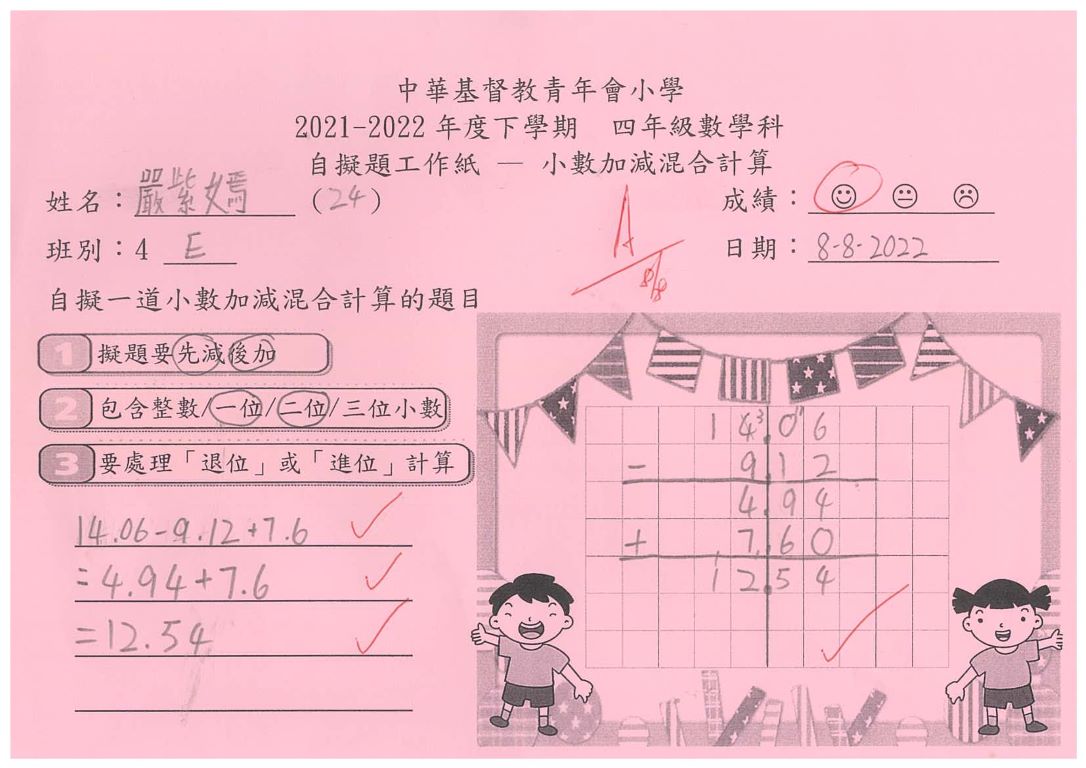 中華基督教青年會小學
2021-2022 年度下學期 四年級數學科
自擬題工作紙 — 小數加減混合計算
姓名：嚴紫嫣 (24)
成績：
班別：4 E
日期：8-8-2022
A
8/8
自擬一道小數加減混合計算的題目
1 擬題要先減後加
2 包含整數/一位/二位/三位小數
3 要處理「退位」或「進位」計算
14.06-9.12+7.6
=4.94+7.6
=12.54
14.06
- 9.12
4.94
+ 7.60
12.54